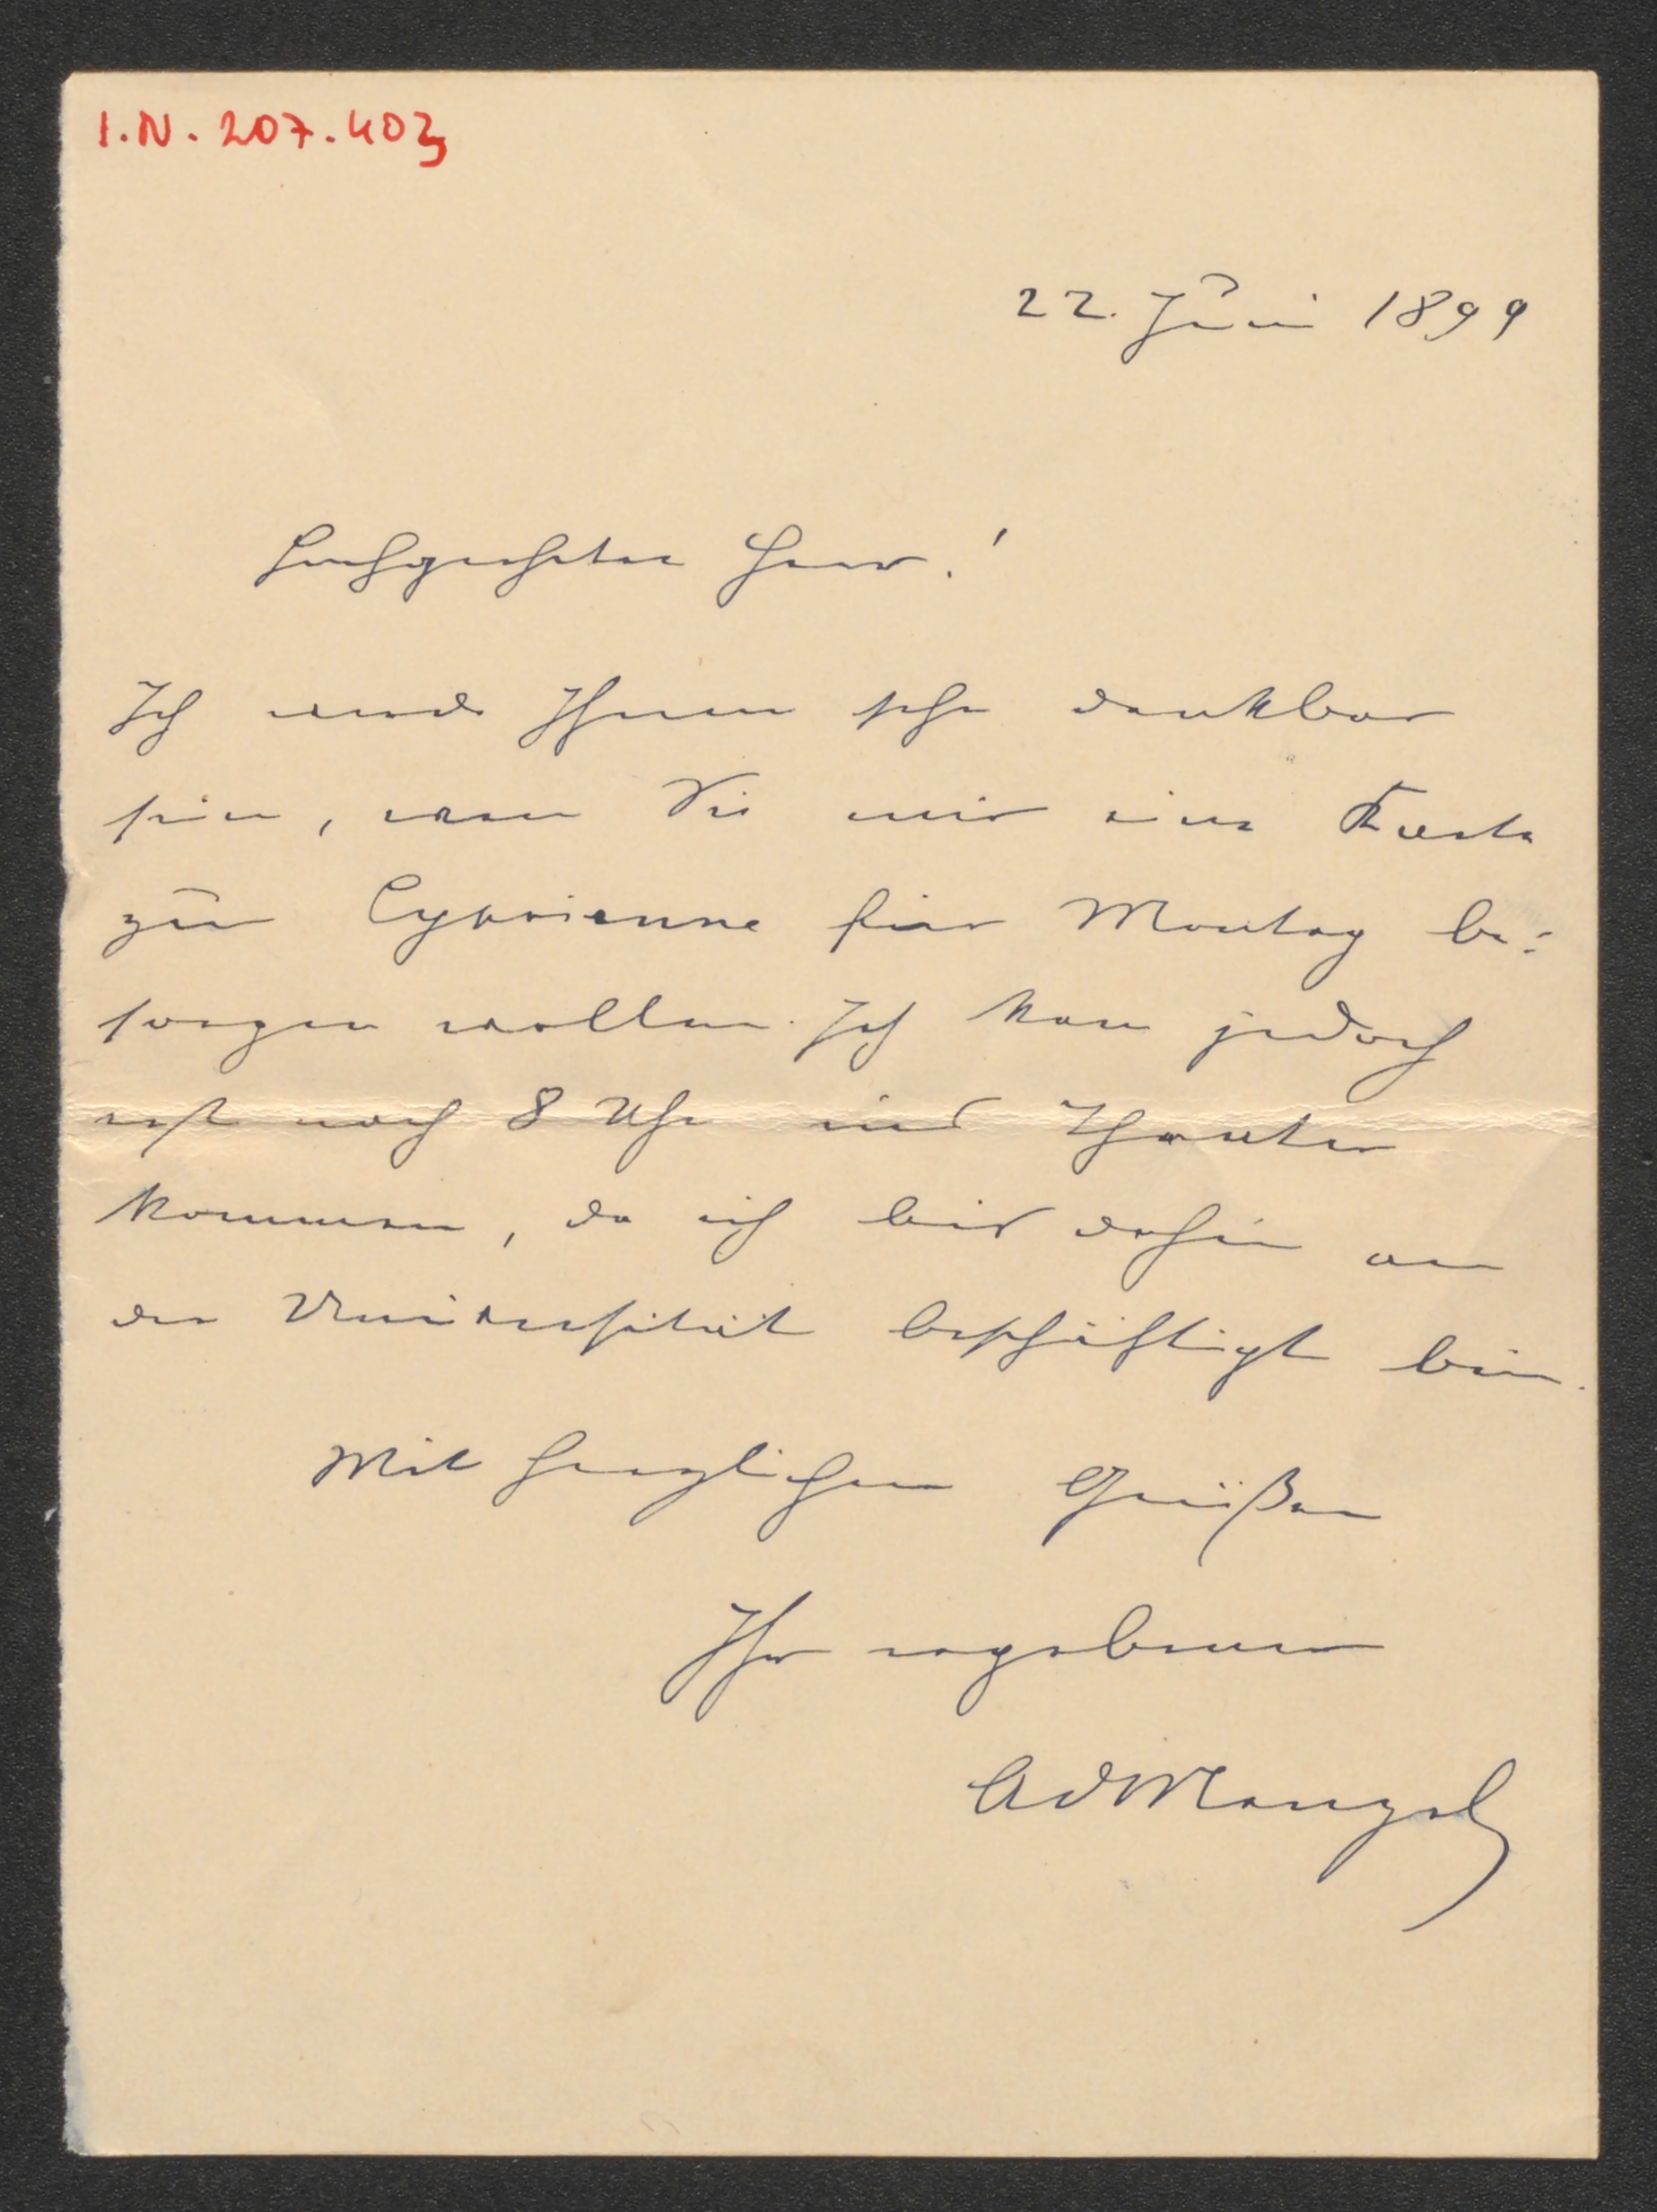 I.N. 207.403
22. Juni 1899
Hochgeehrter Herr!
Ich werde Ihnen sehr dankbar
sein, wenn Sie mir eine Karte
zur Cyprienne für Montag be:
sorgen wollen. Ich kann jedoch
erst nach 8 Uhr ins Theater
kommen, da ich bis dahin an
der Universität beschäftigt bin.
Mit herzlichen Grüßen
Ihr ergebener
AdMenzel